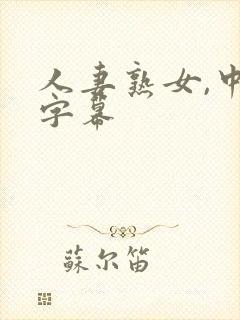 人妻熟女,中
字幕
蘇尔笛